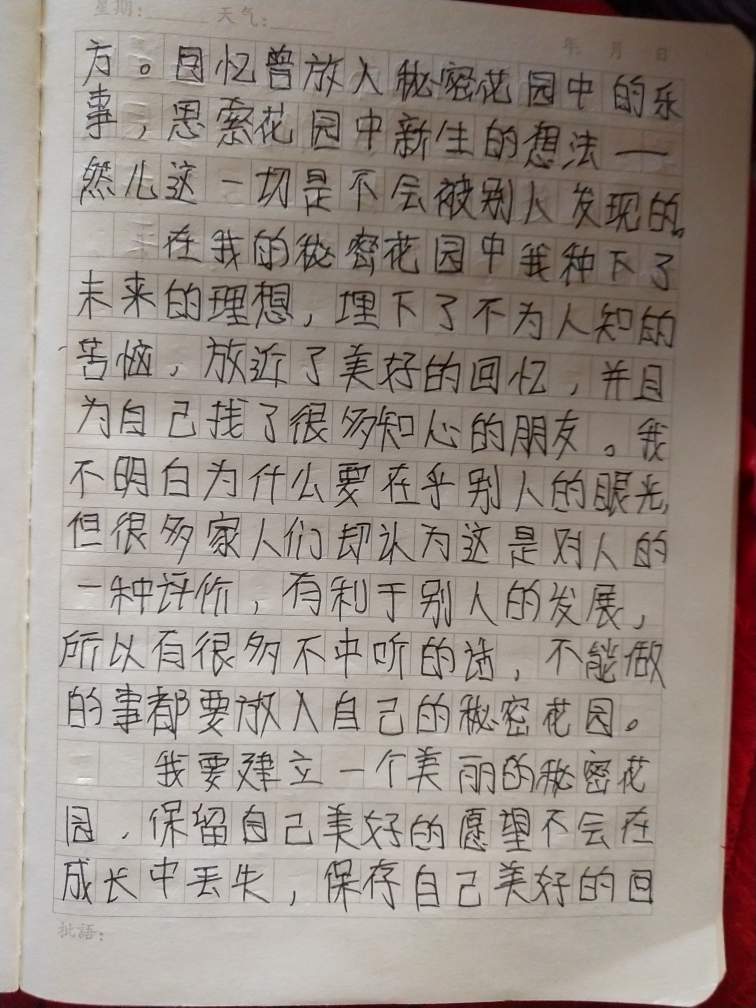 星期: 天气:
年 月 日
方。回忆曾放入秘密花园中的乐
事，思索花园中新生的想法——
然儿这一切是不会被别人发现的。
在我的秘密花园中我种下了
未来的理想，埋下了不为人知的
苦恼，放近了美好的回忆，并且
为自己找了很多知心的朋友。我
不明白为什么要在乎别人的眼光,
但很多家人们却认为这是对人的
一种评价，有利于别人的发展，
所以有很多不中听的话，不能做
的事都要放入自己的秘密花园。
我要建立一个美丽的秘密花
园，保留自己美好的愿望不会在
成长中丢失，保存自己美好的回
批語: